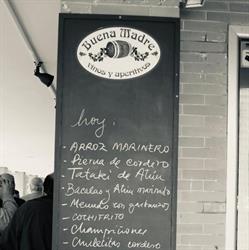 Buena Madre
vinos y aperitivos
hoy:
- ARROZ MARINERO
- Pierna de cordero
- Tataki de Atún
- Bacalao y Atún marinado
- Menudo con garbanzos
- COCHIFRITO
- Champiñones
- Chuletitas cordero